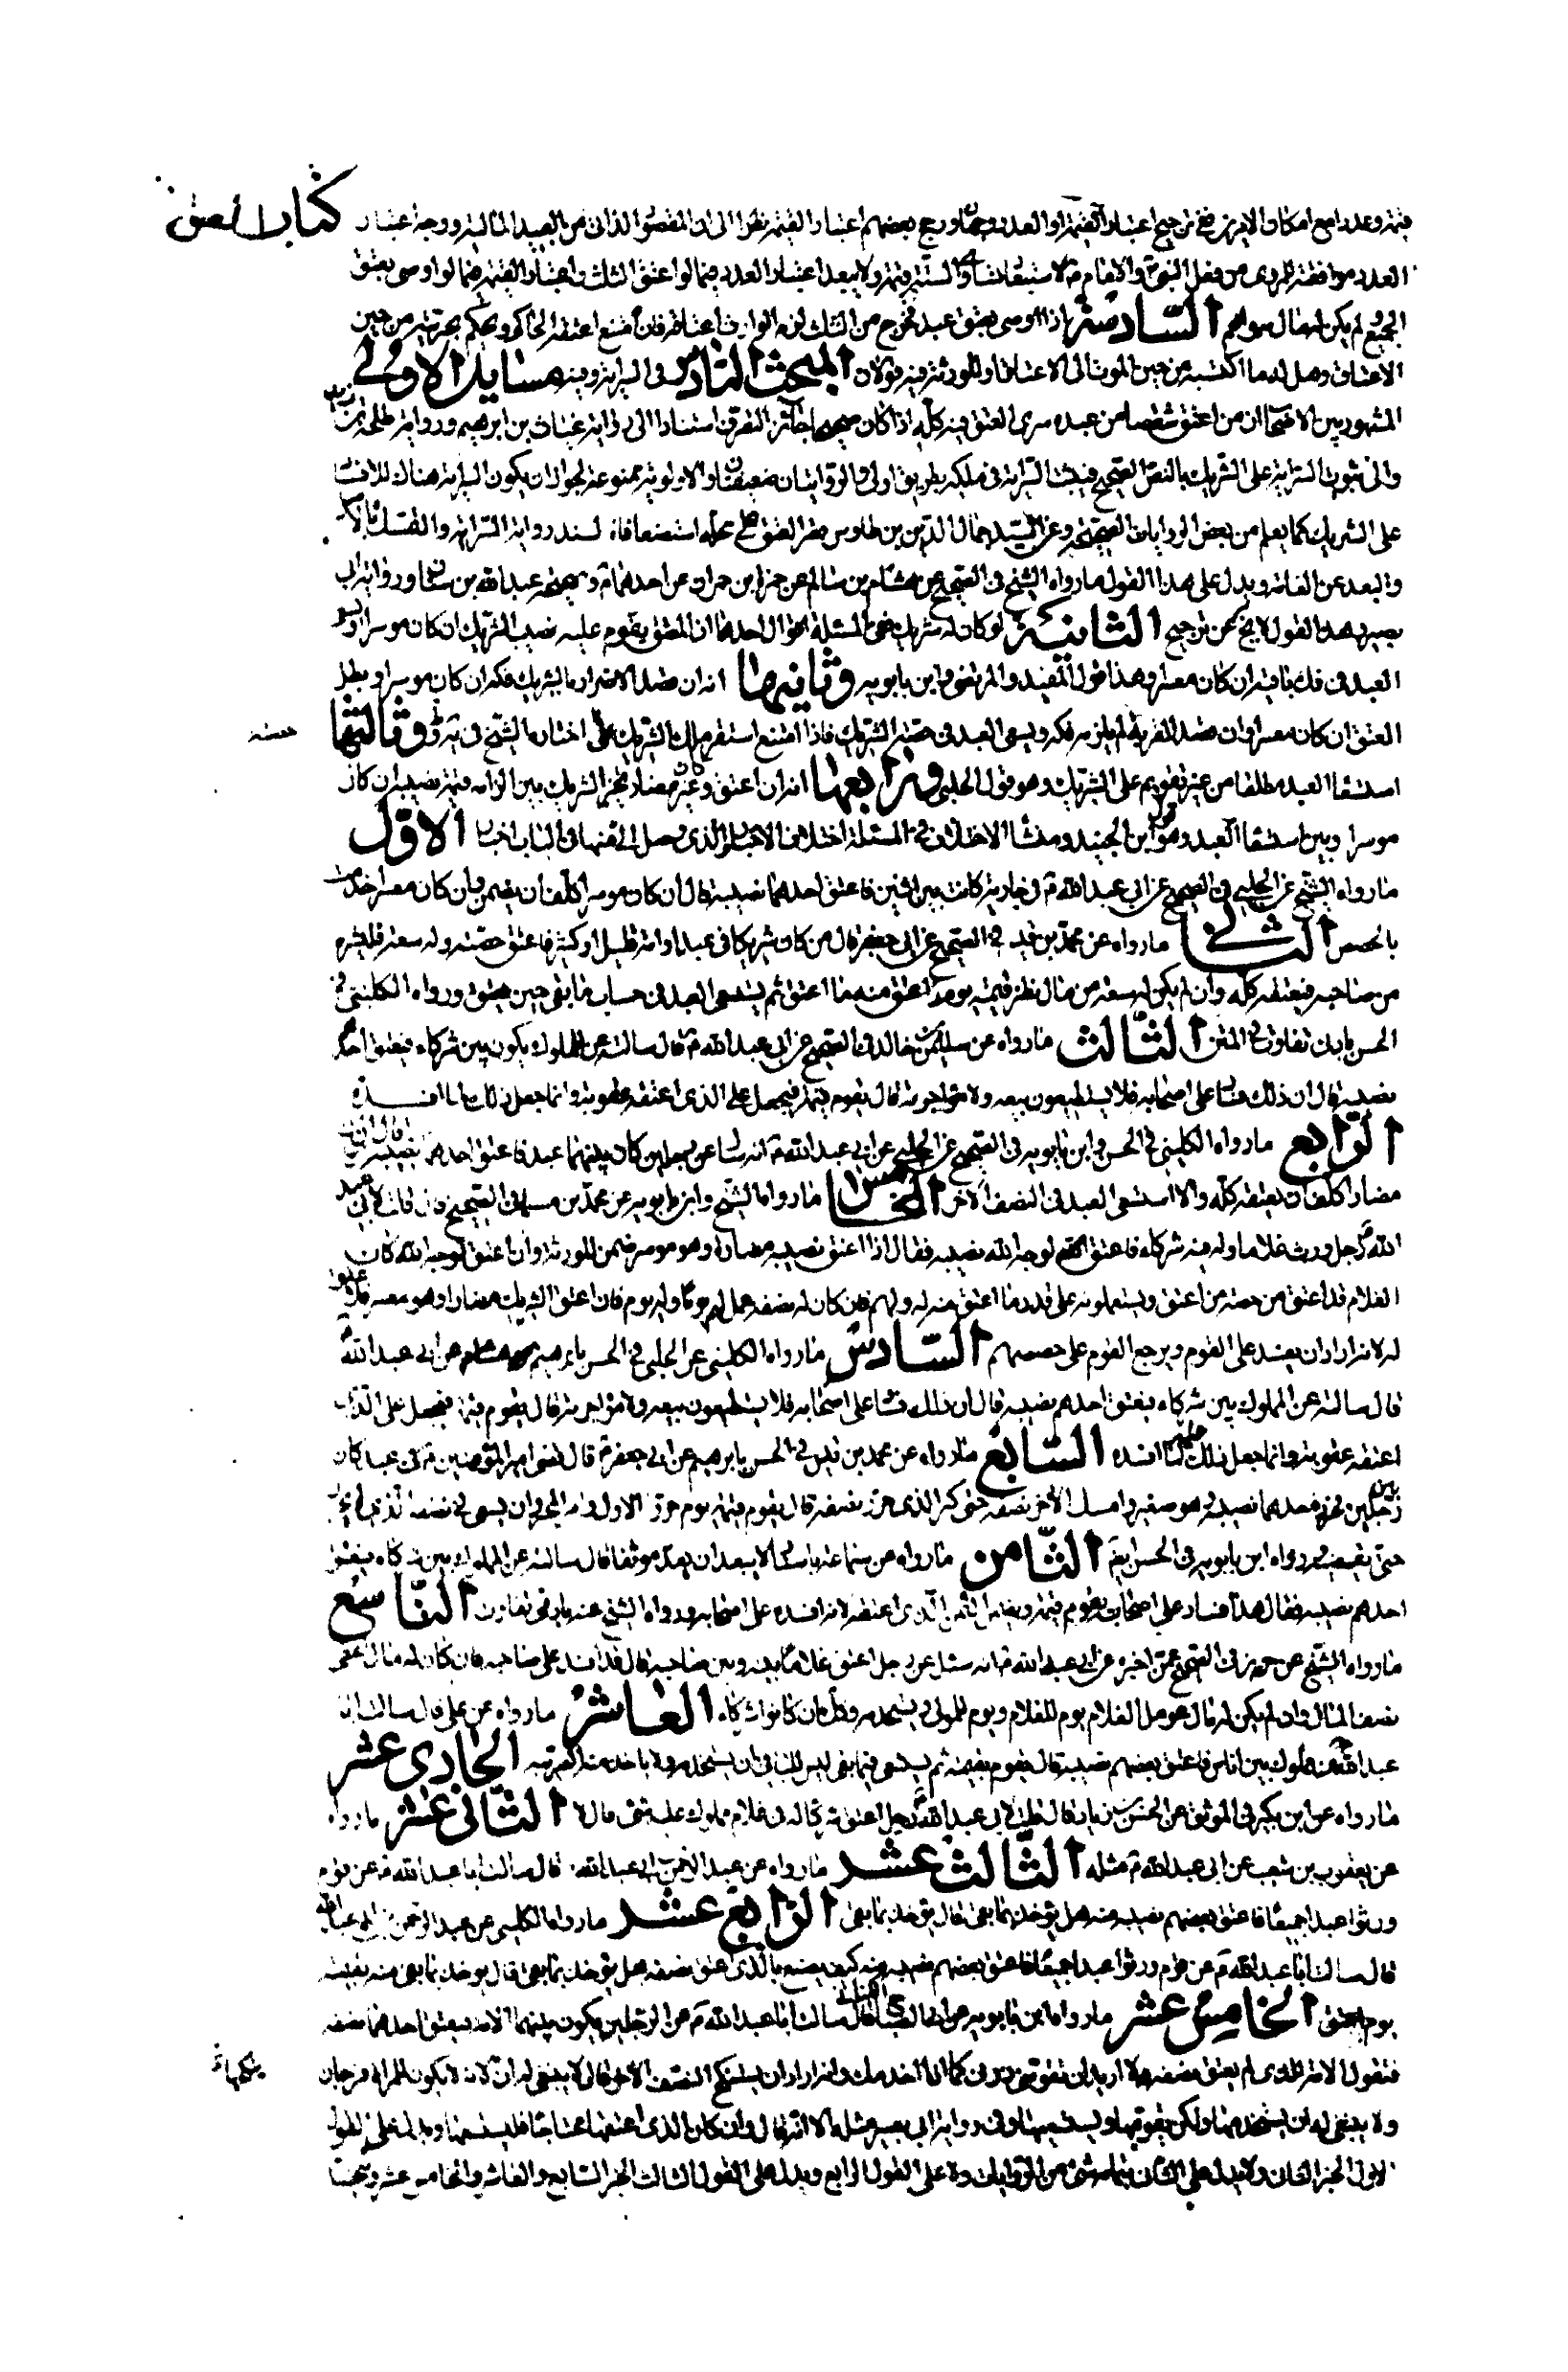 كتاب العتق
قيمة وعددا مع امكان الامرين ففي ترجيح اعتبار القيمة او العدد وجهان ورجح بعضهم اعتبار القيمة نظرا الى ان المقصود الذاتي من العبيد المالية ووجه اعتبار
العدد موافقة المروي من فعل النبي والامام لاستبعاد تساوي الستة قيمة ولا يبعد اعتبار العدد فيما لو اعتق الثلث واعتبار القيمة فيما لو اوصى بعتق
الجميع لم يكن له مال سواهم السادسة اذا اوصى بعتق عبد فخرج من الثلث لزم الوارث اعتاقه فان امتنع اعتقه الحاكم ويحكم بحريته من حين
الاعتاق وهل له ما اكتسبه من حين الموت الى الاعتاق او للورثة فيه قولان المبحث السادس في السراية وفيه مسايل الاولى
المشهور بين الاصحاب ان من اعتق شقصا من عبده سرى العتق فيه كله اذا كان صحيحا جائز التصرف استنادا الى رواية غياث بن ابراهيم ورواية طلحة بن زيد
والى ثبوت السراية على الشريك بالنص الصحيح فيثبت السراية في ملكه بطريق اولى والروايتان ضعيفتان والاولوية ممنوعة لجواز ان يكون السراية هناك للافساد
على الشريك كما يعلم من بعض الروايات الصحيحة وعن السيد جمال الدين بن طاوس قصر العتق على محله استضعافا لسند رواية السراية والتمسك بالاصل
والبعد عن العامة ويدل على هذا القول ما رواه الشيخ في الصحيح عن هشام بن سالم عن حمزة بن حمران عن احدهما وصحيحة عبد الله بن سنان ورواية ابي
بصير وهذا القول لا يخ عن ترجيح الثانية لو كان له شريك ففي المسئلة اقوال احدها ان المعتق يقوم عليه نصيب الشريك ان كان موسرا ويسعى
العبد في فك باقيه ان كان معسرا وهذا قول المفيد والمرتضى وابن بابويه وثانيها انه ان قصد الاضرار بالشريك فكه ان كان موسرا وبطل
العتق ان كان معسرا وان قصد القربة لم يلزمه فكه ويسعى العبد في حصة الشريك فاذا امتنع استقر ملك الشريك على اختاره الشيخ في ية وط وثالثها
استسعاء العبد مطلقا من غير تقويم على الشريك وهو قول الحلبي ورابعها انه ان اعتق وكان غير مضار تخير الشريك بين الزامه قيمة نصيبه ان كان
موسرا وبين استسعاء العبد وهو قول ابن الجنيد ومنشأ الاختلاف في المسئلة اختلاف الاخبار والذي وصل الى منها في الباب اخبار الاول
ما رواه الشيخ عن الحلبي في الصحيح عن ابي عبد الله في جارية كانت بين اثنين فاعتق احدهما نصيبه قال ان كان موسرا كلف ان يضمن وان كان معسرا خدمت
بالحصص الثاني ما رواه عن محمد بن قيس في الصحيح عن ابي جعفر قال من كان شريكا في عبد او امة قليل او كثير فاعتق حصته وله سعة فليشتره
من صاحبه فيعتقه كله وان لم يكن له سعة من مال نظر قيمته يوم اعتق منه ما اعتق ثم يسعى العبد في حساب ما بقي حتى يعتق ورواه الكليني في
الحسن بادنى تفاوت في المتن الثالث ما رواه عن سليمن بن خالد في الصحيح عن ابي عبد الله قال سالته عن المملوك يكون بين شركاء فيعتق احدهم
نصيبه قال ان ذلك فساد على اصحابه فلا يستطيعون بيعه ولا مؤاجرته قال يقوم قيمة فيجعل على الذي اعتقه عقوبة وانما جعل ذلك لما افسده
الرابع ما رواه الكليني في الحسن وابن بابويه في الصحيح عن الحلبي عن ابي عبد الله انه سئل عن رجلين كان بينهما عبد فاعتق احدهما نصيبه فقال ان كان
مضارا كلف ان يعتقه كله والا استسعى العبد في النصف الاخر الخامس ما رواه الشيخ وابن بابويه عن محمد بن مسلم في الصحيح قال قلت لابي عبد
الله رجل ورث غلاما وله فيه شركاء فاعتق لوجه الله نصيبه فقال اذا اعتق نصيبه مضارة وهو موسر ضمن للورثة وان اعتق لوجه الله كان
الغلام قد اعتق من حصة من اعتق ويستعملونه على قدر ما اعتق منه له ولهم فان كان له نصفه عمل لهم يوما وله يوم فان اعتق الشريك مضارا وهو معسر فلا عتق
له لانه اراد ان يفسد على القوم ويرجع القوم على حصصهم السادس ما رواه الكليني عن الحلبي في الحسن بابرهيم عن ابي عبد الله
قال سالته عن المملوك بين شركاء فيعتق احدهم نصيبه قال ان ذلك فساد على اصحابه فلا يستطيعون بيعه ولا مؤاجرته قال يقوم قيمة فيجعل على الذي
اعتقه عقوبة وانما جعل ذلك عليه لما افسده السابع ما رواه عن محمد بن قيس في الحسن بابرهيم عن ابي جعفر قال قضى امير المؤمنين في عبد كان
بين رجلين فحرر احدهما نصيبه وهو صغير وامسك الاخر نصفه حتى كبر الذي حرر نصفه قال يقوم قيمة يوم حرر الاول وامر المحرر ان يسعى في نصفه الذي لم يحرر
حتى يقضيه ورواه ابن بابويه في الحسن ايضا الثامن ما رواه عن سماعة باسناد لا يبعد ان يعد موثقا قال سالته عن المملوك بين شركاء فيعتق
احدهم نصيبه فقال هذا فساد على اصحابه يقوم قيمة ويضمن الثمن الذي اعتقه لانه افسده على اصحابه ورواه الشيخ عنه بادنى تفاوت التاسع
ما رواه الشيخ عن حريز في الصحيح عمن اخبره عن ابي عبد الله انه سئل عن رجل اعتق غلاما بينه وبين صاحبه قال قد افسد على صاحبه فان كان له مال اعطى
نصف المال وان لم يكن له مال عومل الغلام يوم للغلام ويوم للمولى ويستخدمه وكذلك ان كانوا شركاء العاشر ما رواه عن علي قال سالت ابا
عبد الله عن مملوك بين اناس فاعتق بعضهم نصيبه قال يقوم بقيمته ثم يستسعى فيما بقي ليس للباقي ان يستخدمه ولا ياخذ منه الضريبة الحادي عشر
ما رواه عن ابن بكير في الموثق عن الحسن بن زياد قال قلت لابي عبد الله رجل اعتق شركا له في غلام مملوك عليه شيء قال لا الثاني عشر ما رواه
عن يعقوب بن شعيب عن ابي عبد الله مثله الثالث عشر ما رواه عن عبد الرحمن بن ابي عبد الله قال سالت ابا عبد الله عن قوم
ورثوا عبدا جميعا فاعتق بعضهم نصيبه منه هل يؤخذ بما بقي قال يؤخذ بما بقي الرابع عشر ما رواه الكليني عن عبد الرحمن بن ابي عبد الله
قال سالت ابا عبد الله عن قوم ورثوا عبدا جميعا فاعتق بعضهم نصيبه منه كيف يصنع بالذي اعتق نصفه هل يؤخذ بما بقي قال يؤخذ بما بقي منه بقيمته
يوم اعتق الخامس عشر ما رواه ابن بابويه عن ابي الصباح الكناني قال سالت ابا عبد الله عن الرجلين يكون بينهما الامة فيعتق احدهما نصفه
فتقول الامة للذي لم يعتق نصفه لا اريد ان تقومني ذرني كما انا اخدمك وانه اراد ان يستنكح النصف الاخر قال لا ينبغي له ان لانه لا يكون للمراة فرجان
ولا ينبغي له ان يستخدمها ولكن يقومها ويستسعيها وفي رواية ابي بصير مثله الا انه قال وان كان الذي اعتقها محتاجا فليستسعها ويدل على القول
الاول الخبر الثاني ولا يدل على الثاني منها شيء من الروايات ولا على القول الرابع ويدل على القول الثالث الخبر السابع والعاشر والخامس عشر وصحيحة